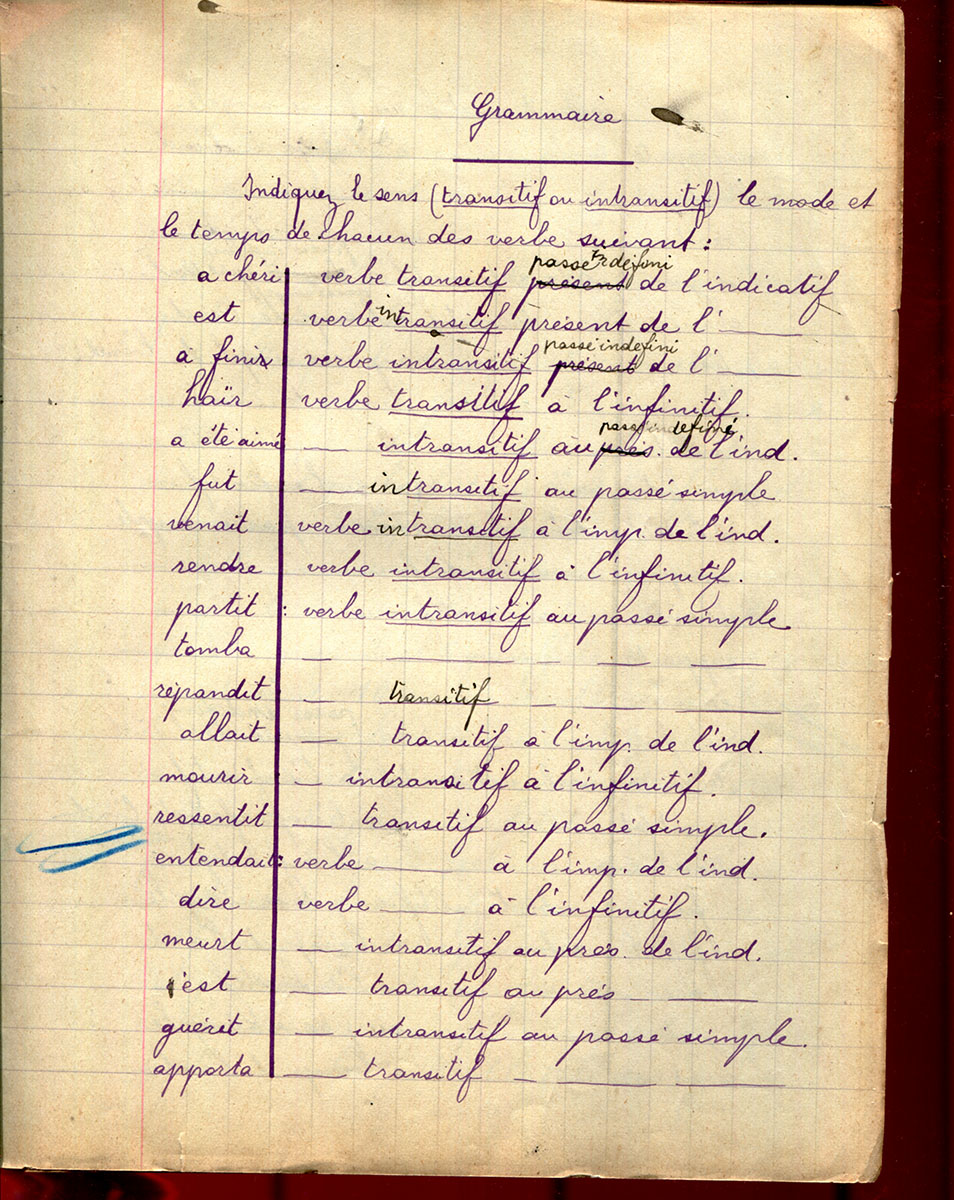 Grammaire
Indiquez le sens (transitif ou intransitif) le mode et
le temps de chacun des verbe suivant :
passé indefini
a chéri verbe transitif présent de l'indicatif
est verbe intransitif présent de l' ———
passé indefini
a finir verbe intransitif présent de l' ———
haïr verbe transitif à l'infinitif.
passé indefini
a été aimé —— intransitif au prés. de l'ind.
fut —— intransitif au passé simple
venait verbe intransitif à l'imp. de l'ind.
rendre verbe intransitif à l'infinitif.
partit : verbe intransitif au passé simple
tomba — ——— — —— ———
répandit — transitif — —— ———
allait — transitif à l'imp. de l'ind.
mourir — intransitif à l'infinitif.
ressentit — transitif au passé simple.
entendait : verbe ——— à l'imp. de l'ind.
dire verbe ——— à l'infinitif.
meurt — intransitif au prés. de l'ind.
c'est — transitif au prés — ———
guérit — intransitif au passé simple.
apporta — transitif — ——— ———